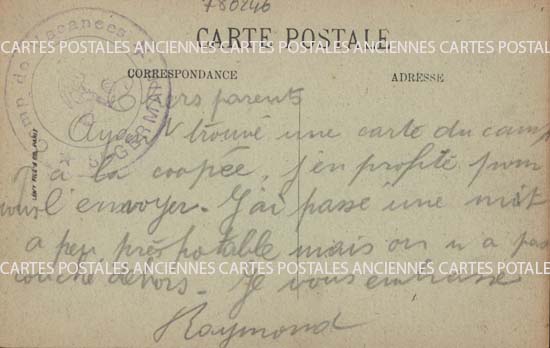 780246
CARTE POSTALE
CORRESPONDANCE
ADRESSE
CARTES POSTALES ANCIENNES CARTES POSTALES ANCIENNES CARTES POSTALES
Camp de Vacances
GERMAIN
LEVY FILS & CIE, PARIS
Chers parents
Ayant trouvé une carte du camp
à la coopée, j'en profite pour
vous l'envoyer. J'ai passé une nuit
à peu près potable mais on n'a pas
CARTES POSTALES ANCIENNES CARTES POSTALES ANCIENNES CARTES POSTALES
couché dehors. Je vous embrasse
Raymond